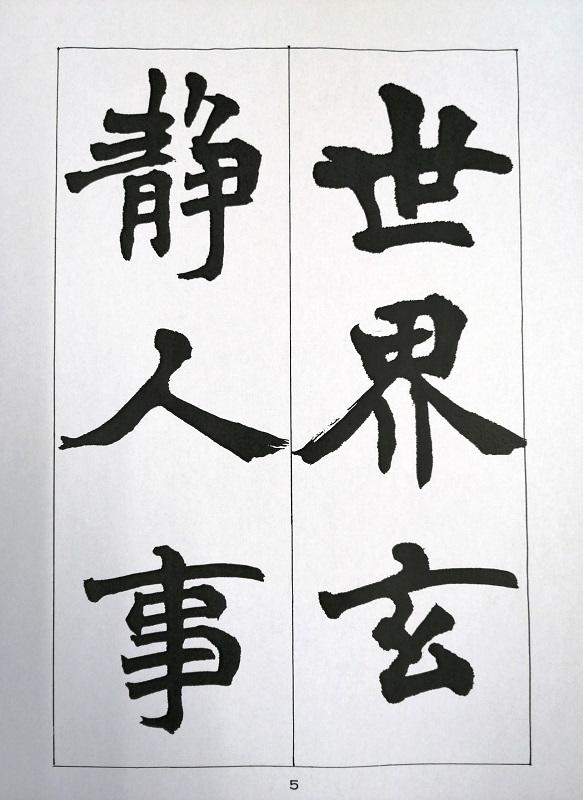 世界玄
静人事
5